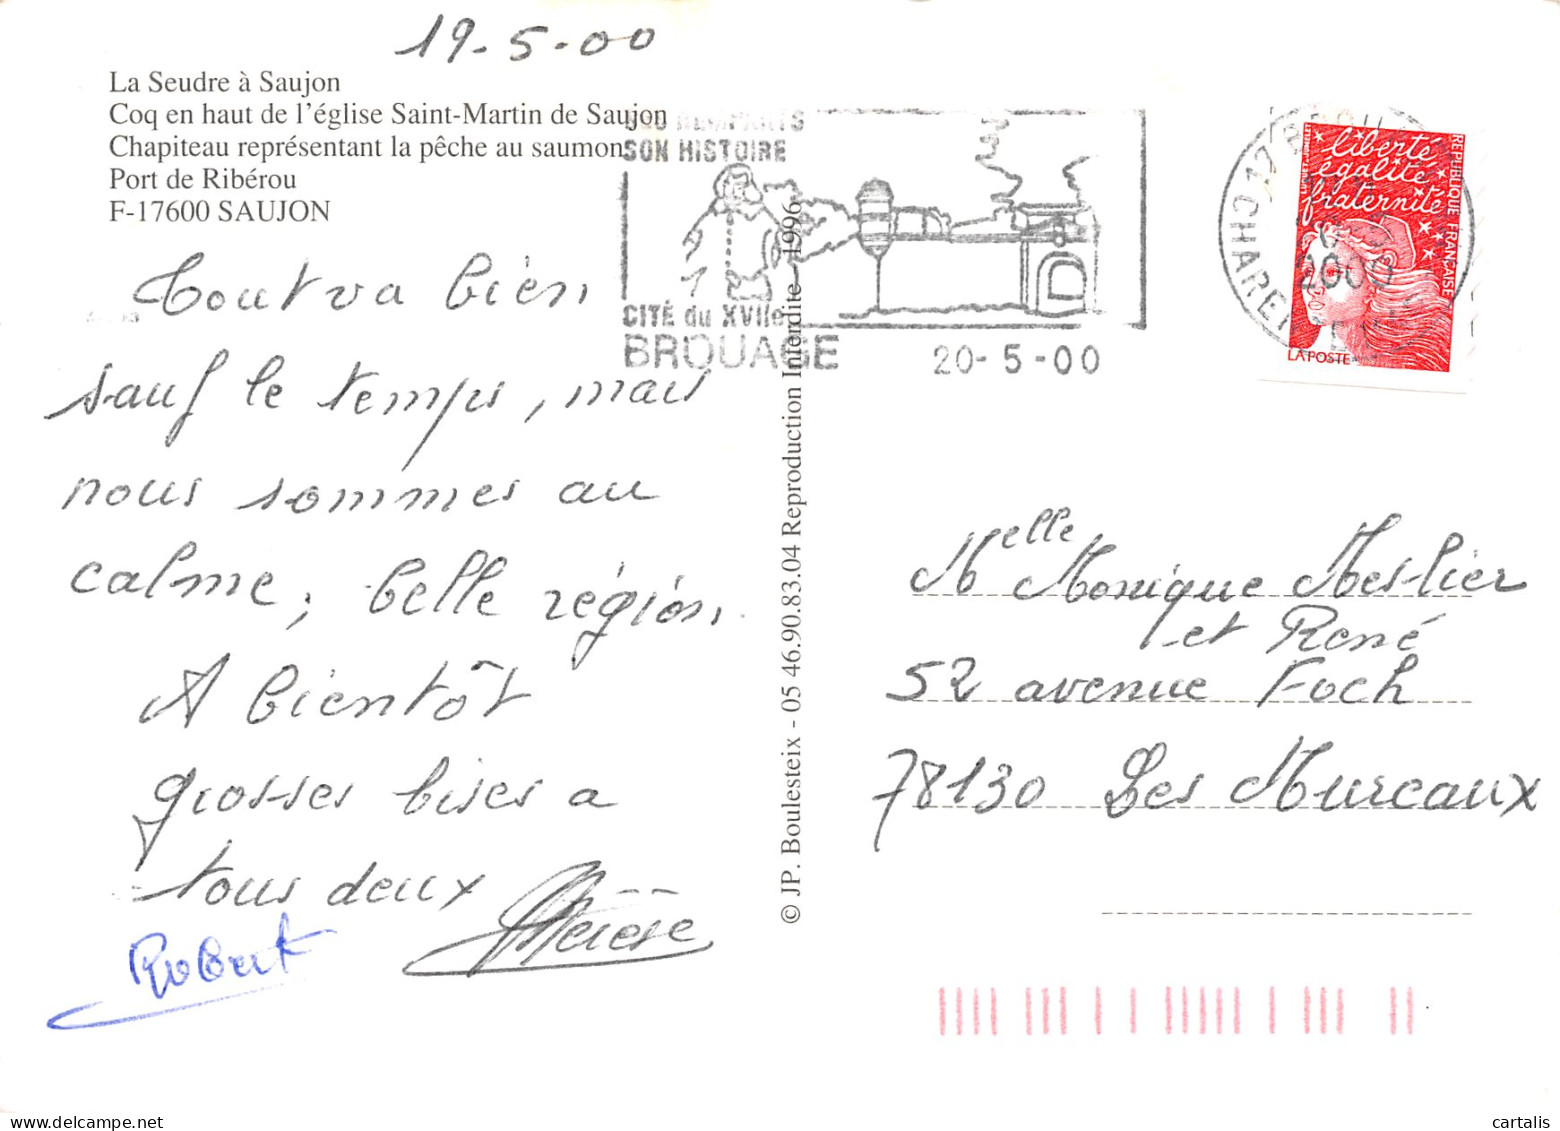 19-5-00
La Seudre à Saujon
Coq en haut de l'église Saint-Martin de Saujon
Chapiteau représentant la pêche au saumon
Port de Ribérou
F-17600 SAUJON
Tout va bien,
sauf le temps, mais
nous sommes au
calme, belle région.
A bientôt
grosses bises a
tous deux
Robert
Thérèse
© JP. Boulesteix - 05 46.90.83.04 Reproduction Interdite 1996
REMPARTS
SON HISTOIRE
CITÉ du XVIIe
BROUAGE
20-5-00
17 BROU
2000
CHAREN
liberté
égalité
fraternité
REPUBLIQUE FRANÇAISE
LA POSTE
Melle Monique Meslier
et René
52 avenue Foch
78130 Les Mureaux
cartalis